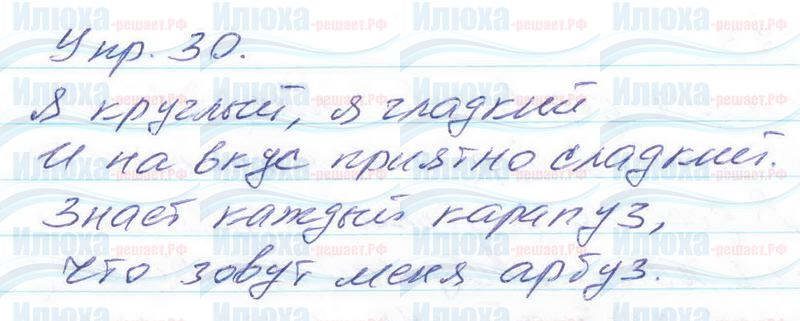 Упр. 30.
Я круглый, я гладкий
И на вкус приятно сладкий.
Знает каждый карапуз,
Что зовут меня арбуз.
Илюха-решает.РФ